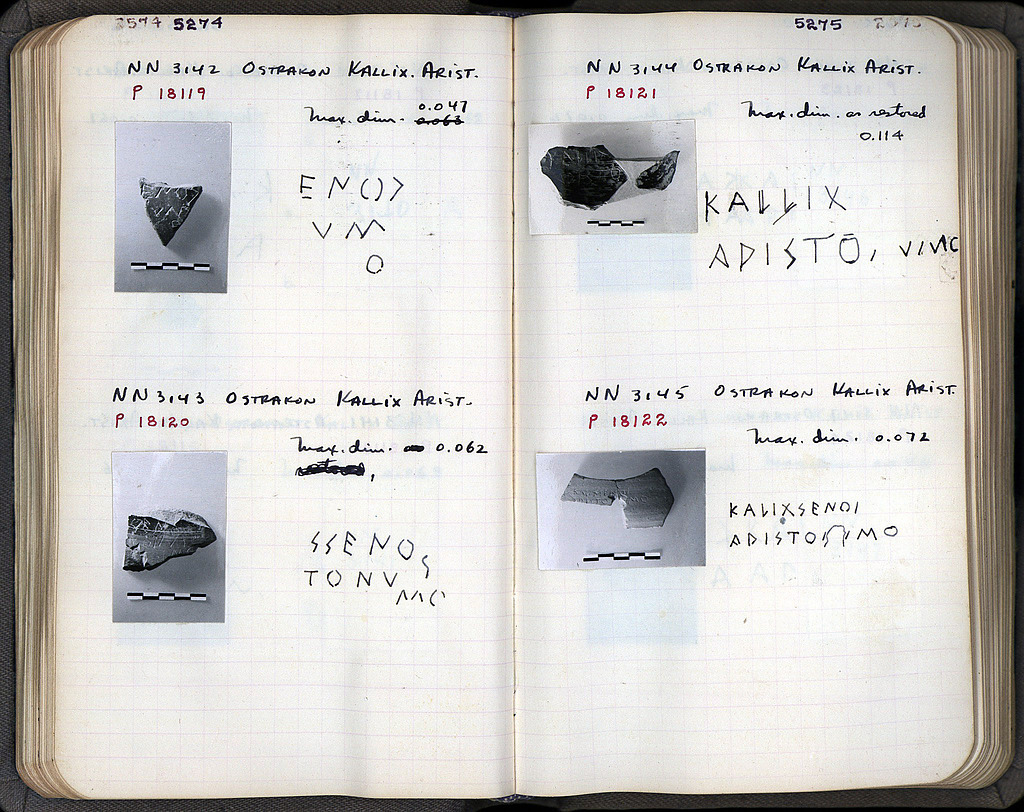 2574 5274
NN 3142 OSTRAKON KALLIX. ARIST.
P 18119
0.047
Max. dim. 0.063
ENO
VM
O
NN 3143 OSTRAKON KALLIX ARIST.
P 18120
Max. dim. 0.062
SSENOS
TONV
5275
NN 3144 OSTRAKON KALLIX ARIST.
P 18121
Max. dim. as restored
0.114
KALLIX
ARISTO
NN 3145 OSTRAKON KALLIX ARIST.
P 18122
Max. dim. 0.072
KALIXSENOI